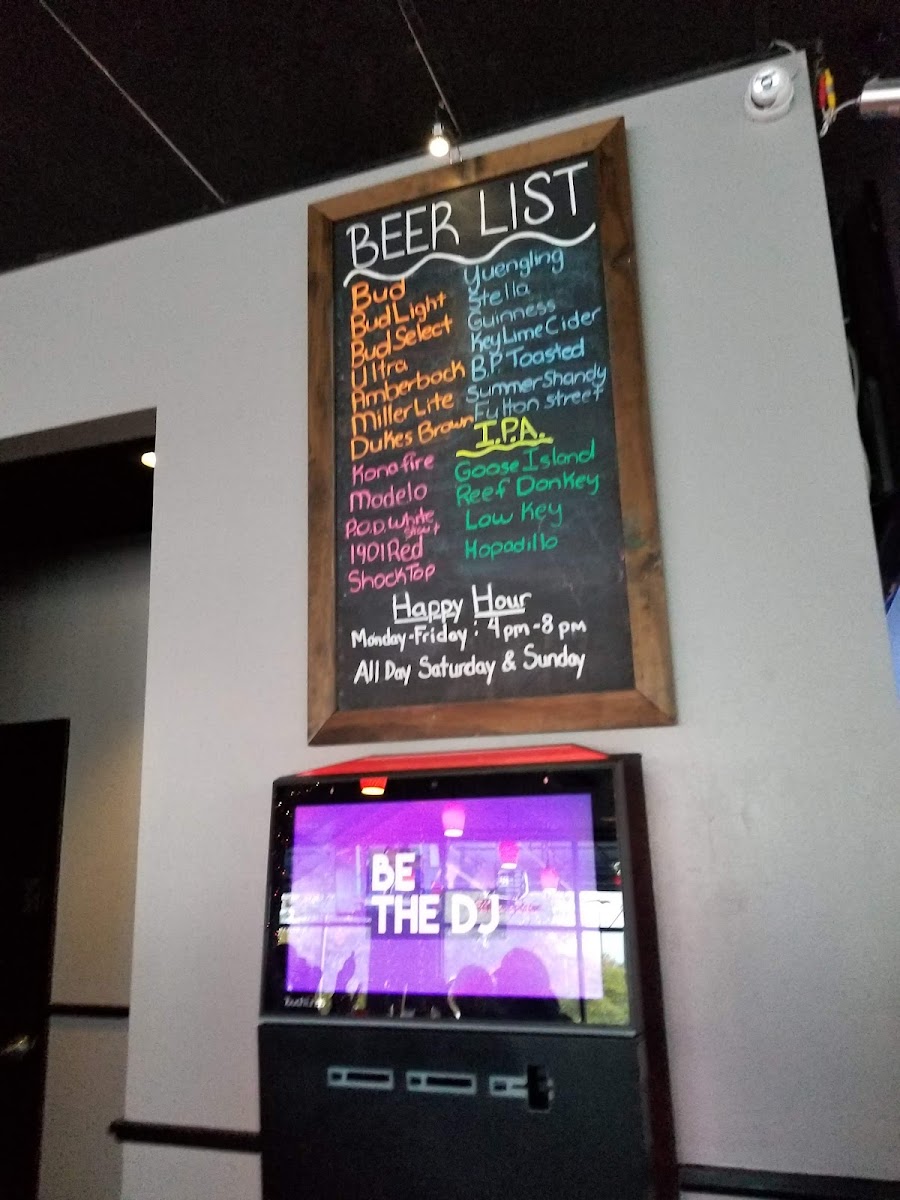 BEER LIST
Bud
Bud Light
Bud Select
Ultra
Amberbock
Miller Lite
Dukes Brown
Kona fire
Modelo
P.O.D. White
1901 Red
Shock Top
Yuengling
Stella
Guinness
Key Lime Cider
B.P. Toasted
Summer Shandy
Fulton street
I.P.A.
Goose Island
Reef Donkey
Low Key
Hopadillo
Happy Hour
Monday-Friday: 4pm-8pm
All Day Saturday & Sunday
BE
THE DJ